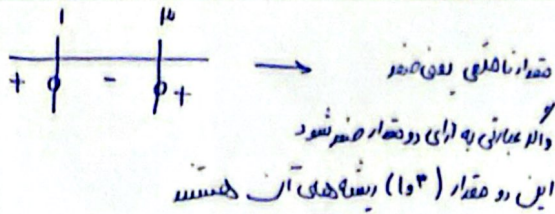 ۱ ۳
+ ۰ - ۰ +
مقدار نامنفی یعنی صفر
و اگر عبارتی به ازای دو مقدار صفر شود
این دو مقدار (۳ و ۱) ریشه‌های آن هستند